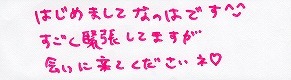 はじめましてなっはです^^
すごく緊張してますが
会いに来てくださいネ♡